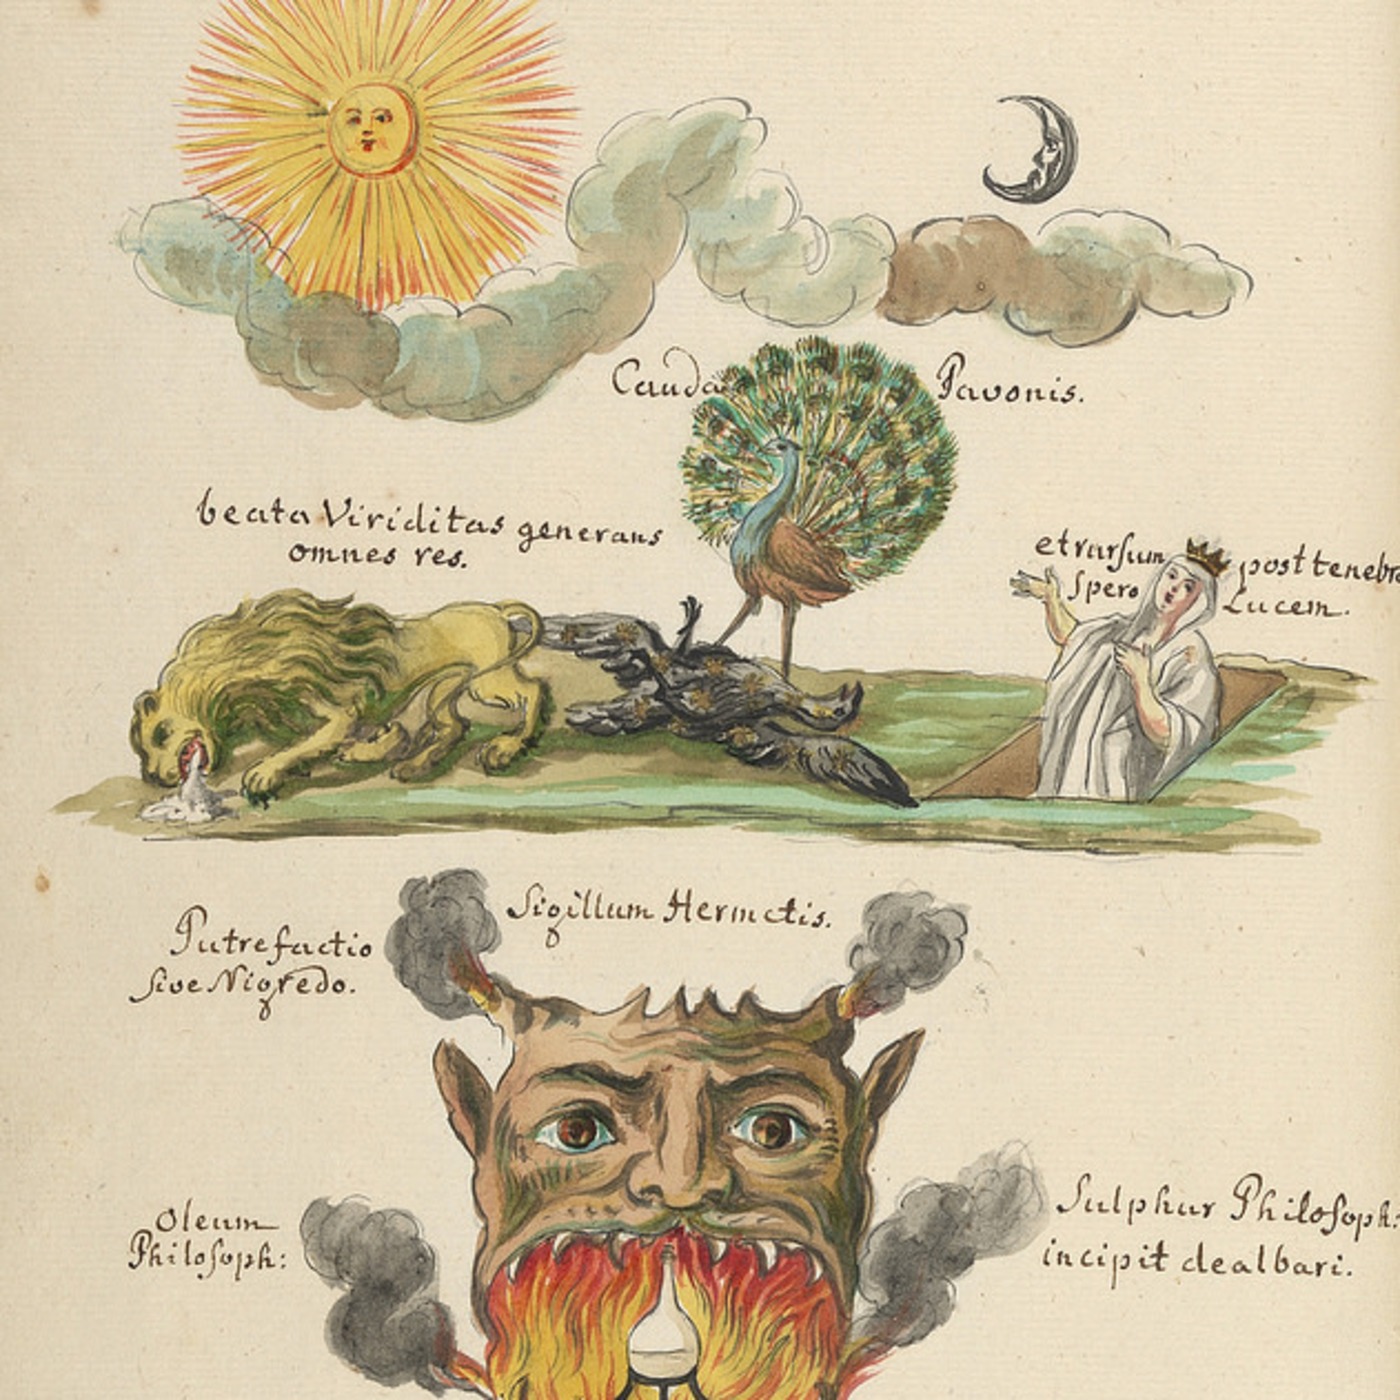 Cauda Pavonis.
beata Viriditas generans
omnes res.
et rursum post tenebr
spero Lucem.
Sigillum Hermetis.
Putrefactio
sive Nigredo.
Oleum
Philosoph:
Sulphur Philosoph:
incipit dealbari.